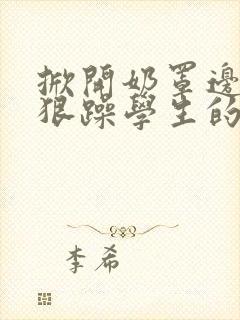 掀開奶罩邊
狠躁學生的
李希